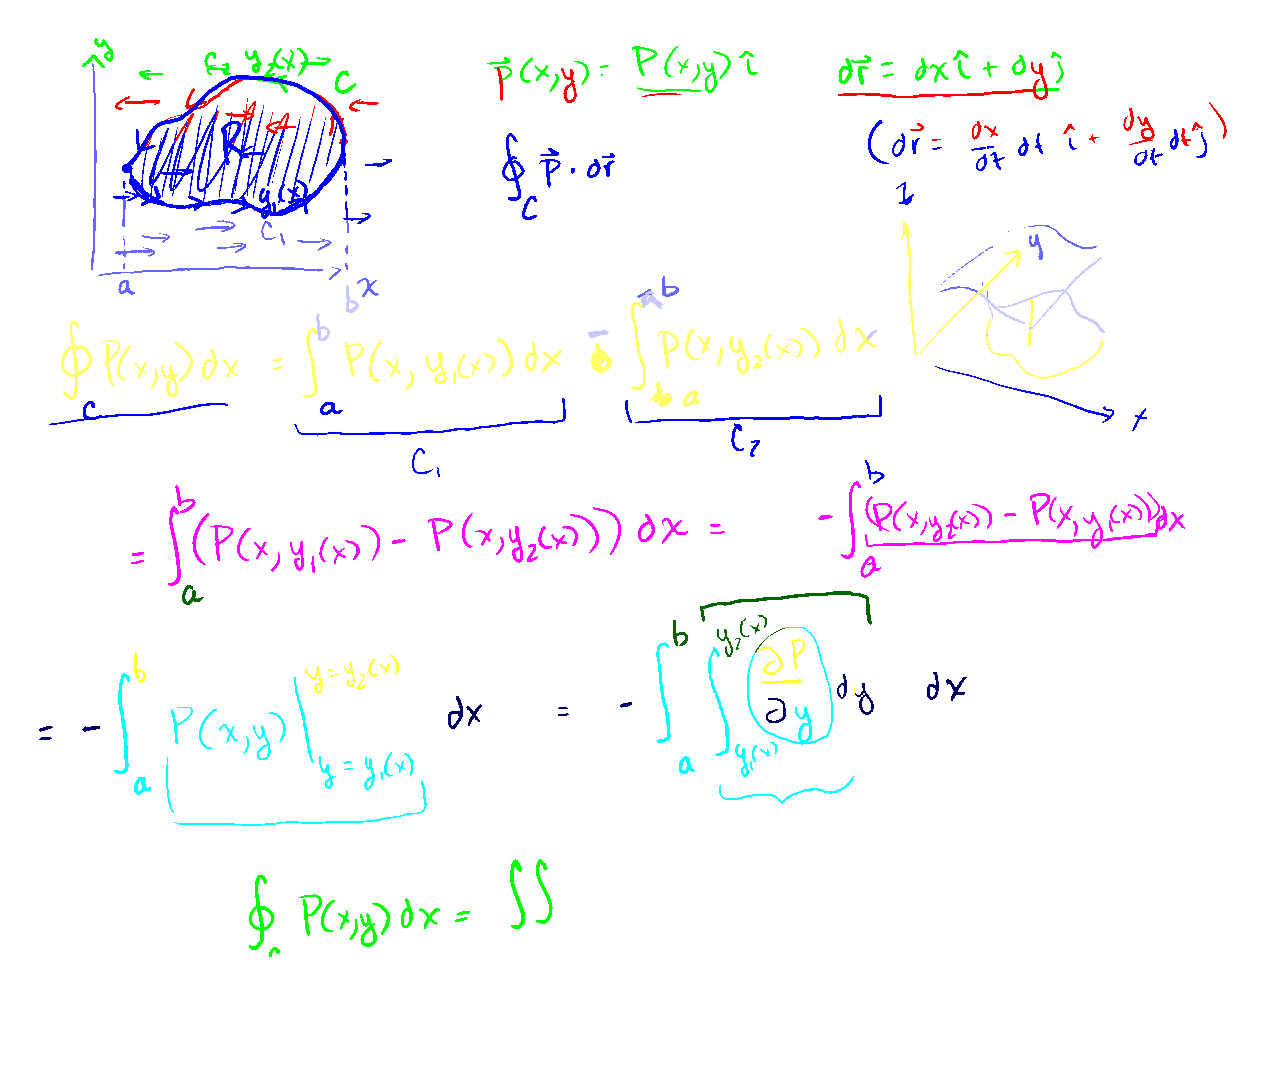 y
C₂ y₂(x) C
R
y₁(x)
C₁
a b x
p⃗(x,y) = P(x,y) î
dr⃗ = dx î + dy ĵ
∮_C p⃗ · dr⃗
(dr⃗ = dx/dt dt î + dy/dt dt ĵ)
z y x
∮_C P(x,y) dx = ∫_a^b P(x, y₁(x)) dx - ∫_a^b P(x, y₂(x)) dx
C₁ C₂
= ∫_a^b (P(x, y₁(x)) - P(x, y₂(x))) dx = - ∫_a^b (P(x, y₂(x)) - P(x, y₁(x))) dx
= - ∫_a^b P(x,y) |_{y = y₁(x)}^{y = y₂(x)} dx = - ∫_a^b ∫_{y₁(x)}^{y₂(x)} ∂P/∂y dy dx
∮_C P(x,y) dx = ∬